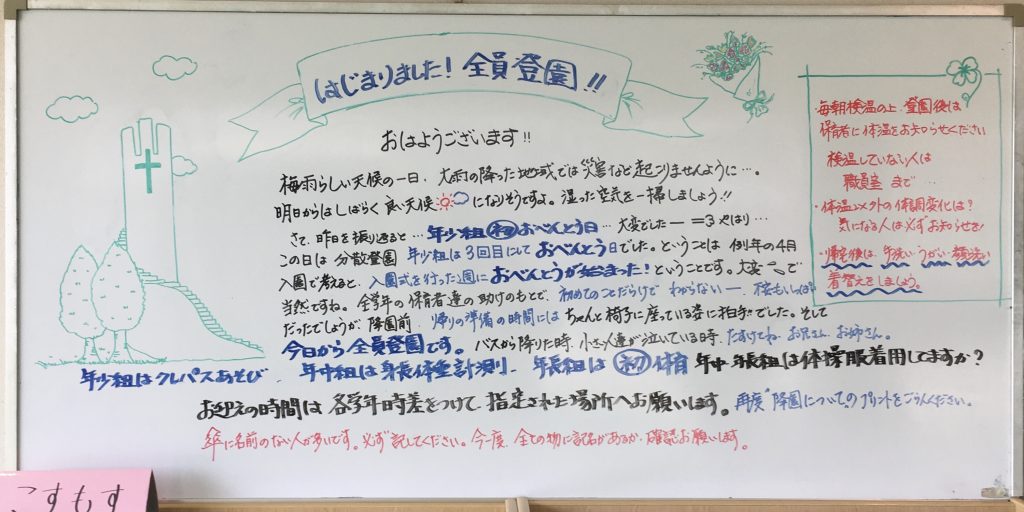 はじまりました！全員登園!!
おはようございます!!
梅雨らしい天候の一日、大雨の降った地域では災害など起こりませんように…。
明日からはしばらく良い天候になりそうですよ。湿った空気を一掃しましょう!!
さて、昨日を振り返ると…年少組初おべんとう日…大変でしたー=3やはり…
この日は分散登園年少組は3回目にしておべんとう日でした。ということは例年の4月
入園で考えると、入園式を行った週におべんとうが始まった！ということです。大変〜で
当然ですね。全学年の保育者達の助けのもとで、初めてのことだらけでわからないー、不安もいっぱい
だったでしょうが降園前、帰りの準備の時間にはちゃんと椅子に座っている姿に拍手でした。そして
今日から全員登園です。バスから降りた時、小さい人達が泣いている時、たすけてね、お兄さん、お姉さん。
年少組はクレパスあそび、年中組は身長体重計測、年長組は初体育 年中・年長組は体操服着用してますか？
お迎えの時間は各学年時差をつけて、指定された場所へお願いします。再度"降園について"のプリントをごらんください。
傘に名前のない人が多いです。必ず記してください。今一度、全ての物に記名があるか、確認お願いします。
・毎朝検温の上、登園後は
保育者に体温をお知らせください
検温していない人は
職員室まで…
・体温以外の体調変化は？
気になる人は必ずお知らせを！
・帰宅後は、手洗い・うがい・顔洗い
着替えをしましょう。
こすもす